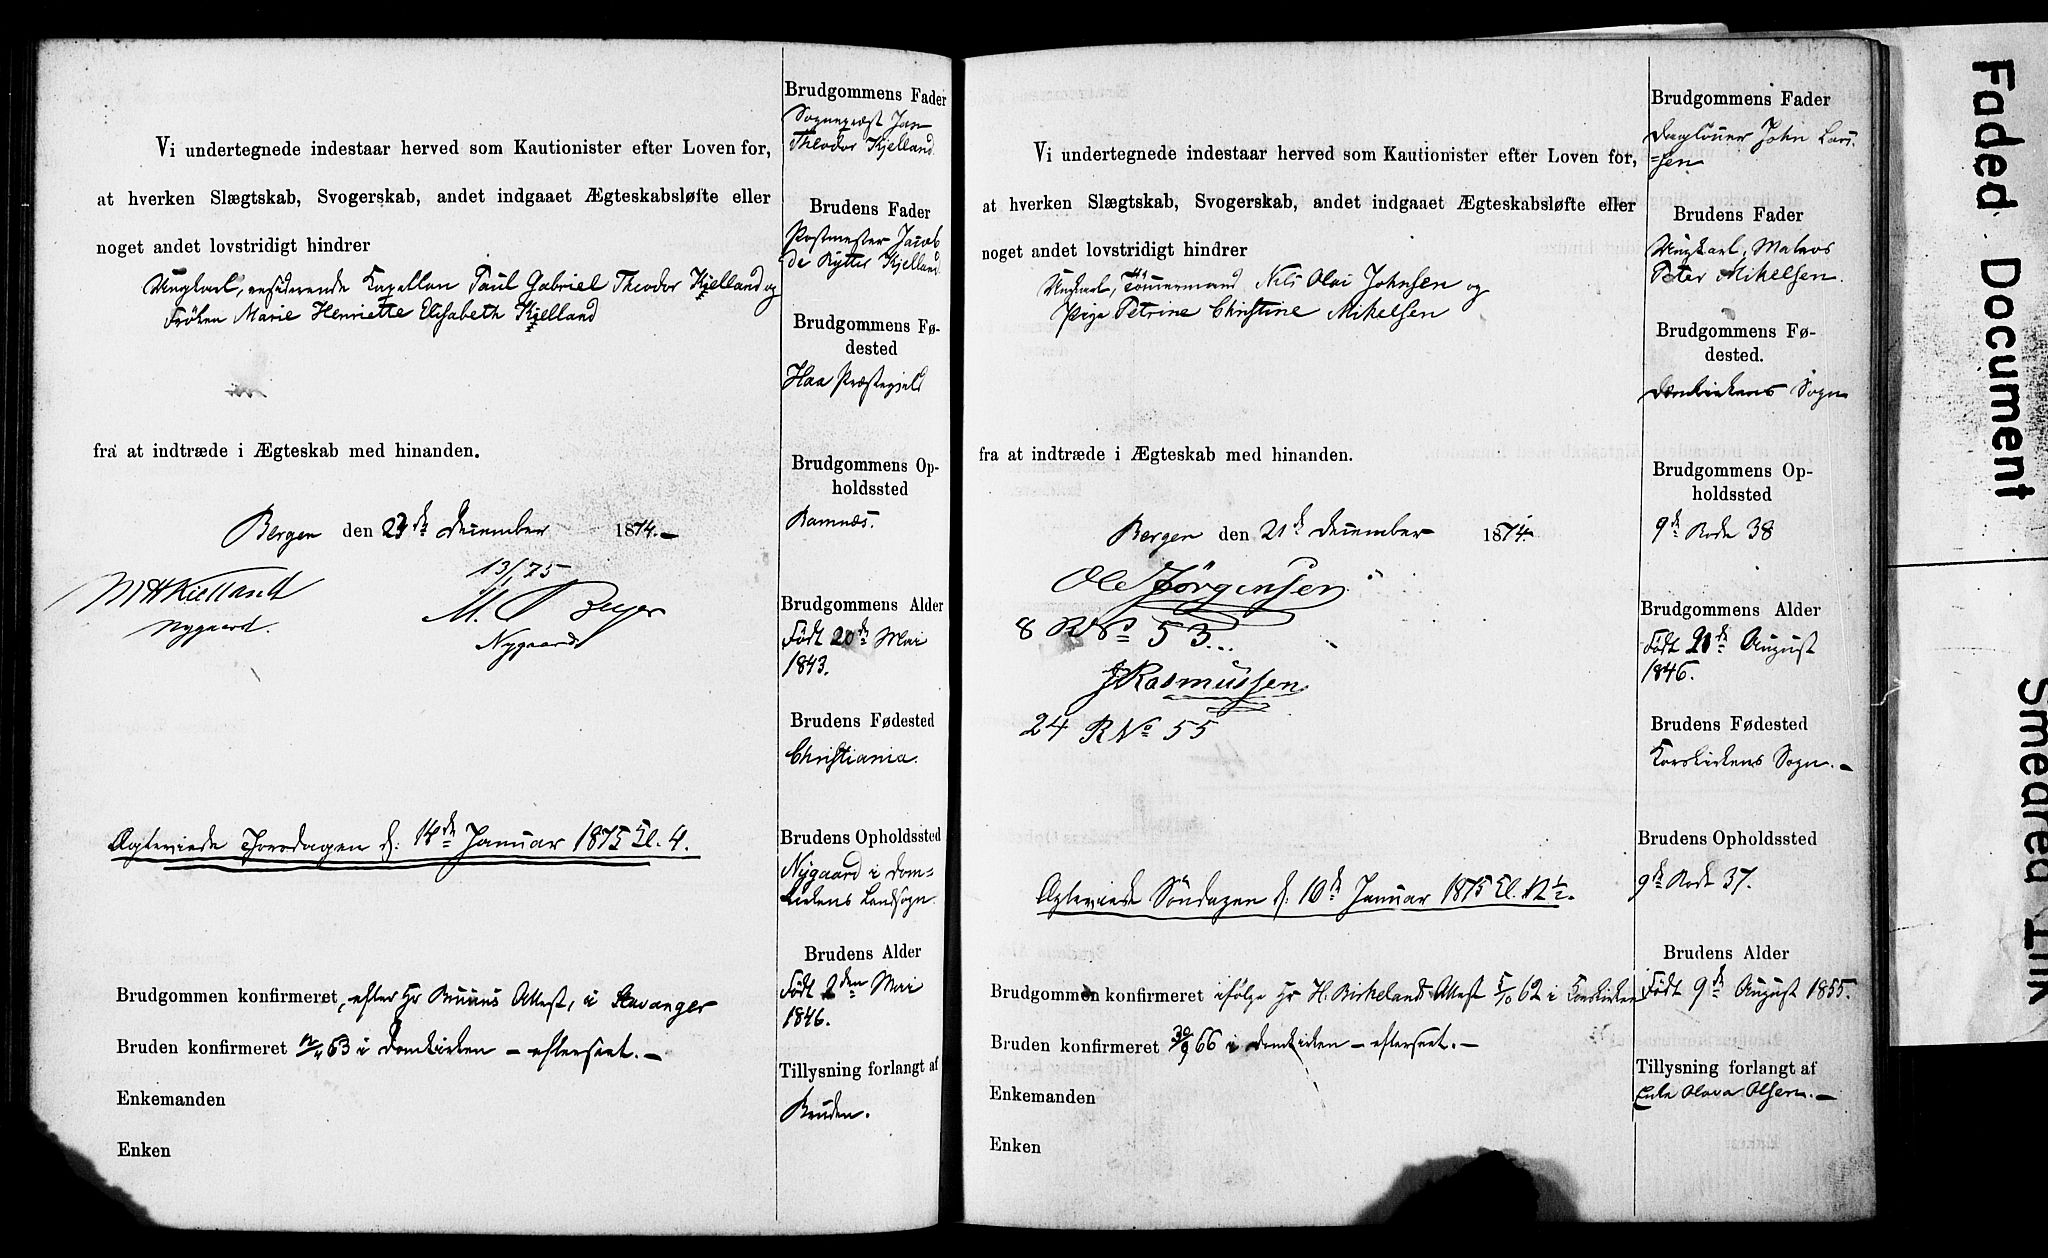 Vi undertegnede indestaar herved som Kautionister efter Loven for,
at hverken Slægtskab, Svogerskab, andet indgaaet Ægteskabsløfte eller
noget andet lovstridigt hindrer
Ungkarl, residerende Kapellan Paul Gabriel Theodor Kjelland og
Frøken Marie Henriette Elisabeth Kjelland
fra at indtræde i Ægteskab med hinanden.
Bergen den 23de December 1874.
13/1 75
MHKielland
Nygaard.
M. Beyer
Nygaard
Ægteviede Torsdagen d: 14de Januar 1875 Kl. 4.
Brudgommen konfirmeret, efter Hr Bruuns Attest, i Stavanger
Bruden konfirmeret 12/4 63 i Domkirken – efterseet. –
Enkemanden
Enken
Brudgommens Fader
Sognepræst Jan
Theodor Kjelland
Brudens Fader
Postmester Jacob
de Rytter Kjelland.
Brudgommens Fø-
dested
Haa Præstegjeld
Brudgommens Op-
holdssted
Ramnæs.
Brudgommens Alder
Født 20de Mai
1843.
Brudens Fødested
Christiania.
Brudens Opholdssted
Nygaard i Dom-
kirkens Landsogn.
Brudens Alder
Født 2den Mai
1846.
Tillysning forlangt af
Bruden.
Vi undertegnede indestaar herved som Kautionister efter Loven for,
at hverken Slægtskab, Svogerskab, andet indgaaet Ægteskabsløfte eller
noget andet lovstridigt hindrer
Ungkarl, Tömmermand Nils Olai Johnsen og
Pige Petrine Christine Mikelsen
fra at indtræde i Ægteskab med hinanden.
Bergen den 21de December 1874.
Ole Jörgensen
8 R No 53
J Rasmussen
24 R No 55
Ægteviede Söndagen d: 10de Januar 1875 Kl. 12½.
Brudgommen konfirmeret ifölge Hr H. Birkelands Attest 5/10 62 i Korskirken
Bruden konfirmeret i Domkirken – efterseet. –
Enkemanden
Enken
Brudgommens Fader
Daglönner John Lars-
=sen
Brudens Fader
Ungkarl, Mateos
Peter Mikelsen.
Brudgommens Fø-
dested.
Domkirkens Sogn
Brudgommens Op-
holdssted
9de Rode 38
Brudgommens Alder
Født August
1846.
Brudens Fødested
Korskirkens Sogn. –
Brudens Opholdssted
9de Rode 37.
Brudens Alder
Født 9de August 1855.
Tillysning forlangt af
Olava Olsen. –
Faded Document
Smeared Ink